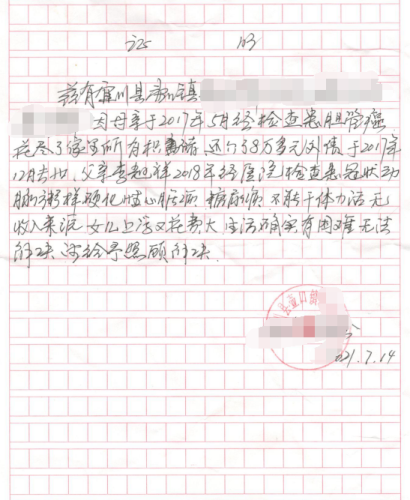 证 明
兹有 川县 镇
因母亲于2017年5月经检查患胆管癌
花尽了家里所有积蓄 还欠了8万多元外债于2017年
12月去世,父亲李 祥2018年经医院检查患冠状动
脉粥样硬化性心脏病 糖尿病 不能干体力活 无
收入来源 女儿上学又花费大 生活确实有困难无法
解决 给予照顾解决.
21.7.14